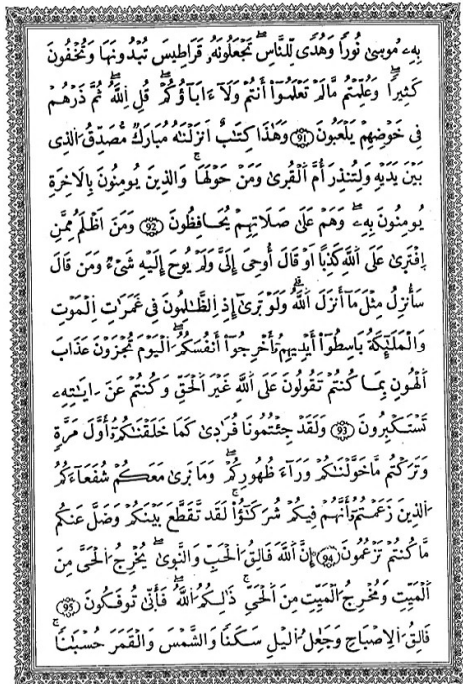 بِهِۦ مُوسَىٰ نُورًا وَهُدًى لِّلنَّاسِ تَجْعَلُونَهُۥ قَرَاطِيسَ تُبْدُونَهَا وَتُخْفُونَ
كَثِيرًا وَعُلِّمْتُم مَّا لَمْ تَعْلَمُوٓا أَنتُمْ وَلَآ ءَابَآؤُكُمْ قُلِ اللَّهُ ثُمَّ ذَرْهُمْ
فِى خَوْضِهِمْ يَلْعَبُونَ (91) وَهَٰذَا كِتَٰبٌ اَنزَلْنَٰهُ مُبَارَكٌ مُّصَدِّقُ الَّذِى
بَيْنَ يَدَيْهِ وَلِتُنذِرَ أُمَّ اَلْقُرَىٰ وَمَنْ حَوْلَهَا وَالَّذِينَ يُومِنُونَ بِالَاخِرَةِ
يُومِنُونَ بِهِۦ وَهُمْ عَلَىٰ صَلَاتِهِمْ يُحَافِظُونَ (92) وَمَنَ اَظْلَمُ مِمَّنِ
اِفْتَرَىٰ عَلَى اَللَّهِ كَذِبًا اَوْ قَالَ أُوحِىَ إِلَىَّ وَلَمْ يُوحَ إِلَيْهِ شَىْءٌ وَمَن قَالَ
سَأُنزِلُ مِثْلَ مَآ أَنزَلَ اَللَّهُ وَلَوْ تَرَىٰٓ إِذِ اِلظَّٰلِمُونَ فِى غَمَرَٰتِ اِلْمَوْتِ
وَالْمَلَٰٓئِكَةُ بَاسِطُوٓا أَيْدِيهِمُۥٓ أَخْرِجُوٓا أَنفُسَكُمُ اُلْيَوْمَ تُجْزَوْنَ عَذَابَ
اَلْهُونِ بِمَا كُنتُمْ تَقُولُونَ عَلَى اَللَّهِ غَيْرَ اَلْحَقِّ وَكُنتُمْ عَنَ ـايَٰتِهِۦ
تَسْتَكْبِرُونَ (93) وَلَقَدْ جِئْتُمُونَا فُرَٰدَىٰ كَمَا خَلَقْنَٰكُمُۥٓ أَوَّلَ مَرَّةٍ
وَتَرَكْتُم مَّا خَوَّلْنَٰكُمْ وَرَآءَ ظُهُورِكُمْ وَمَا نَرَىٰ مَعَكُمْ شُفَعَآءَكُمُ
اُلَّذِينَ زَعَمْتُمُۥٓ أَنَّهُمْ فِيكُمْ شُرَكَٰٓؤُا لَقَد تَّقَطَّعَ بَيْنَكُمْ وَضَلَّ عَنكُم
مَّا كُنتُمْ تَزْعُمُونَ (94) إِنَّ اَللَّهَ فَالِقُ اُلْحَبِّ وَالنَّوَىٰ يُخْرِجُ اُلْحَىَّ مِنَ
اَلْمَيِّتِ وَمُخْرِجُ اُلْمَيِّتِ مِنَ اَلْحَىِّ ذَٰلِكُمُ اُللَّهُ فَأَنَّىٰ تُوفَكُونَ (95)
فَالِقُ اُلِاصْبَاحِ وَجَٰعِلُ اُليْلِ سَكَنًا وَالشَّمْسَ وَالْقَمَرَ حُسْبَٰنًا